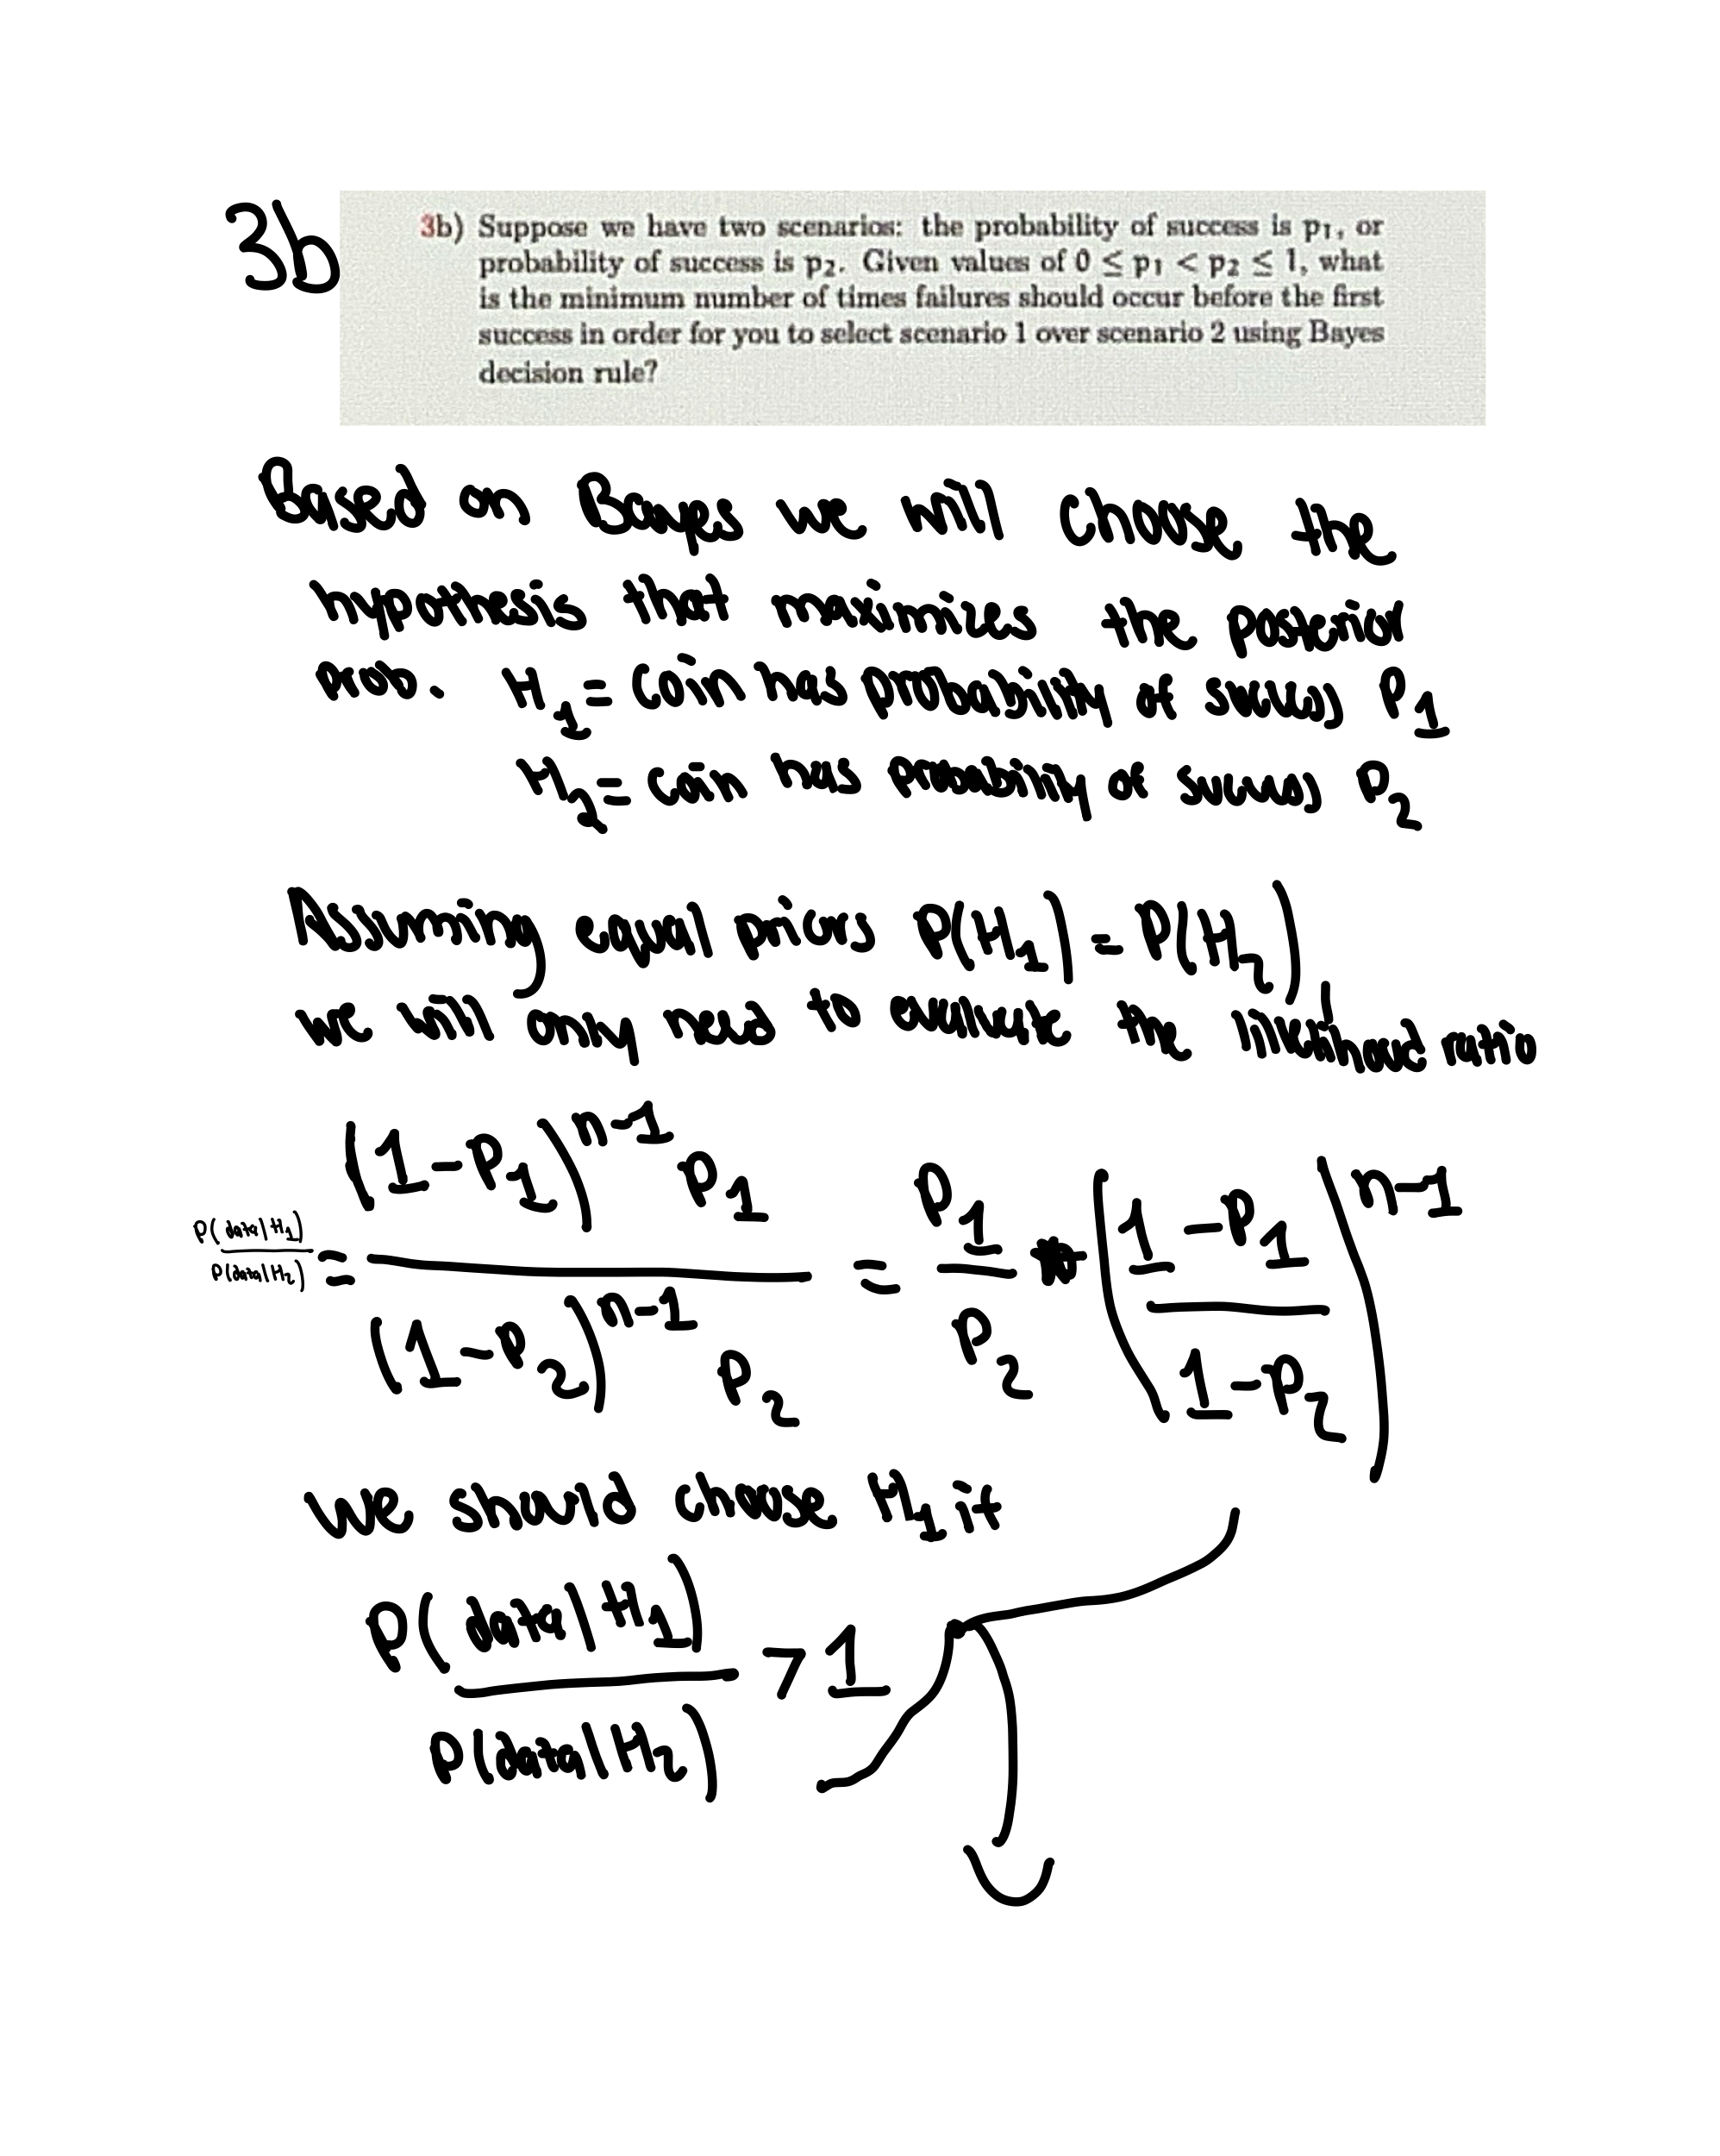 3b
3b) Suppose we have two scenarios: the probability of success is p₁, or
probability of success is p₂. Given values of 0 ≤ p₁ < p₂ ≤ 1, what
is the minimum number of times failures should occur before the first
success in order for you to select scenario 1 over scenario 2 using Bayes
decision rule?
Based on Bayes we will choose the
hypothesis that maximizes the posterior
prob. H₁ = coin has probability of success P₁
H₂ = coin has probability of success P₂
Assuming equal priors P(H₁) = P(H₂),
we will only need to evaluate the likelihood ratio
P(data|H₁) / P(data|H₂) = (1-P₁)^(n-1) P₁ / (1-P₂)^(n-1) P₂ = P₁/P₂ * ((1-P₁)/(1-P₂))^(n-1)
we should choose H₁ if
P(data|H₁) / P(data|H₂) > 1